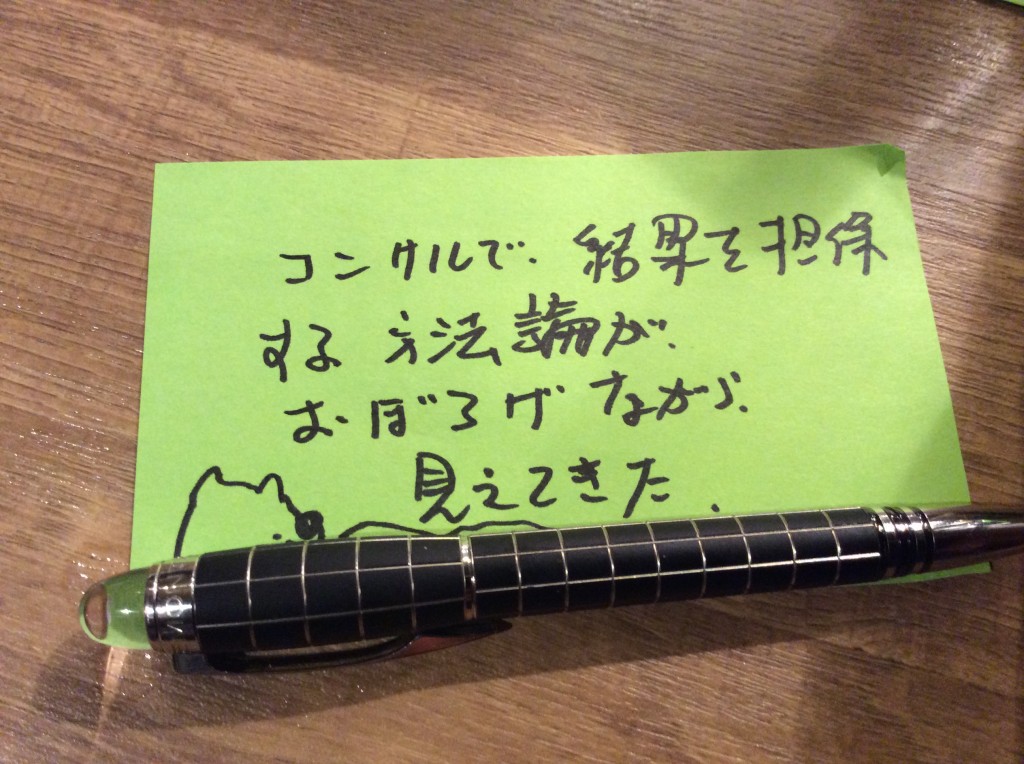 コンサルで、結果を担保
する方法論が、
おぼろげながら、
見えてきた.